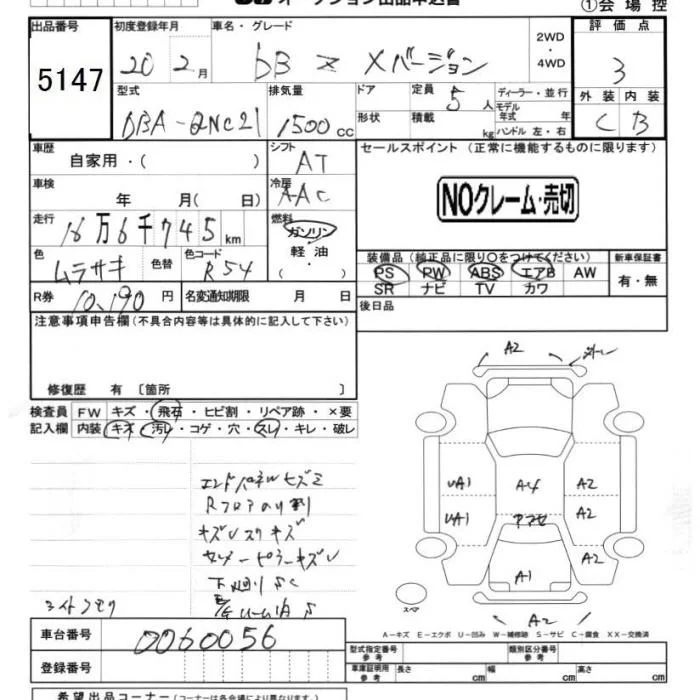 オークション出品申込書
①会場控
出品番号
5147
初度登録年月
20 2月
車名・グレード
bB Z Xバージョン
2WD
・
4WD
評価点
3
型式
DBA-QNC21
排気量
1500cc
ドア
形状
定員 5人
積載 kg
ディーラー・並行
モデル
年式 年
ハンドル 左・右
外装 内装
C B
車歴
自家用・( )
シフト
AT
セールスポイント(正常に機能するものに限ります)
NOクレーム・売切
車検
年 月( 日)
冷房
AAC
走行
16万6千745km
燃料
ガソリン
軽油
・
色
ムラサキ
色替
色コード
R54
装備品(純正品に限り○をつけてください)
PS PW ABS エアB AW
SR ナビ TV カワ
新車保証書
有・無
R券 10,190円
名変通知期限 月 日
後日品
注意事項申告欄(不具合内容等は具体的に記入して下さい)
修復歴 有〔箇所 〕
検査員
記入欄
FW キズ・飛石・ヒビ割・リペア跡・×要
内装 キズ・汚レ・コゲ・穴・スレ・キレ・破レ
キズUスリキズ
センターピラーキズU
下廻りSC
A2
UA1 A4 A2
UA1 A2
A1
A2
スペア
A-キズ E-エクボ U-凹み W-補修跡 S-サビ C-腐食 XX-交換済
車台番号
0060056
登録番号
型式指定番号
参考
類別区分番号
参考
車庫証明用
参考
長さ cm 幅 cm 高さ cm
希望出品コーナー(コーナーは各会場により異なります。)